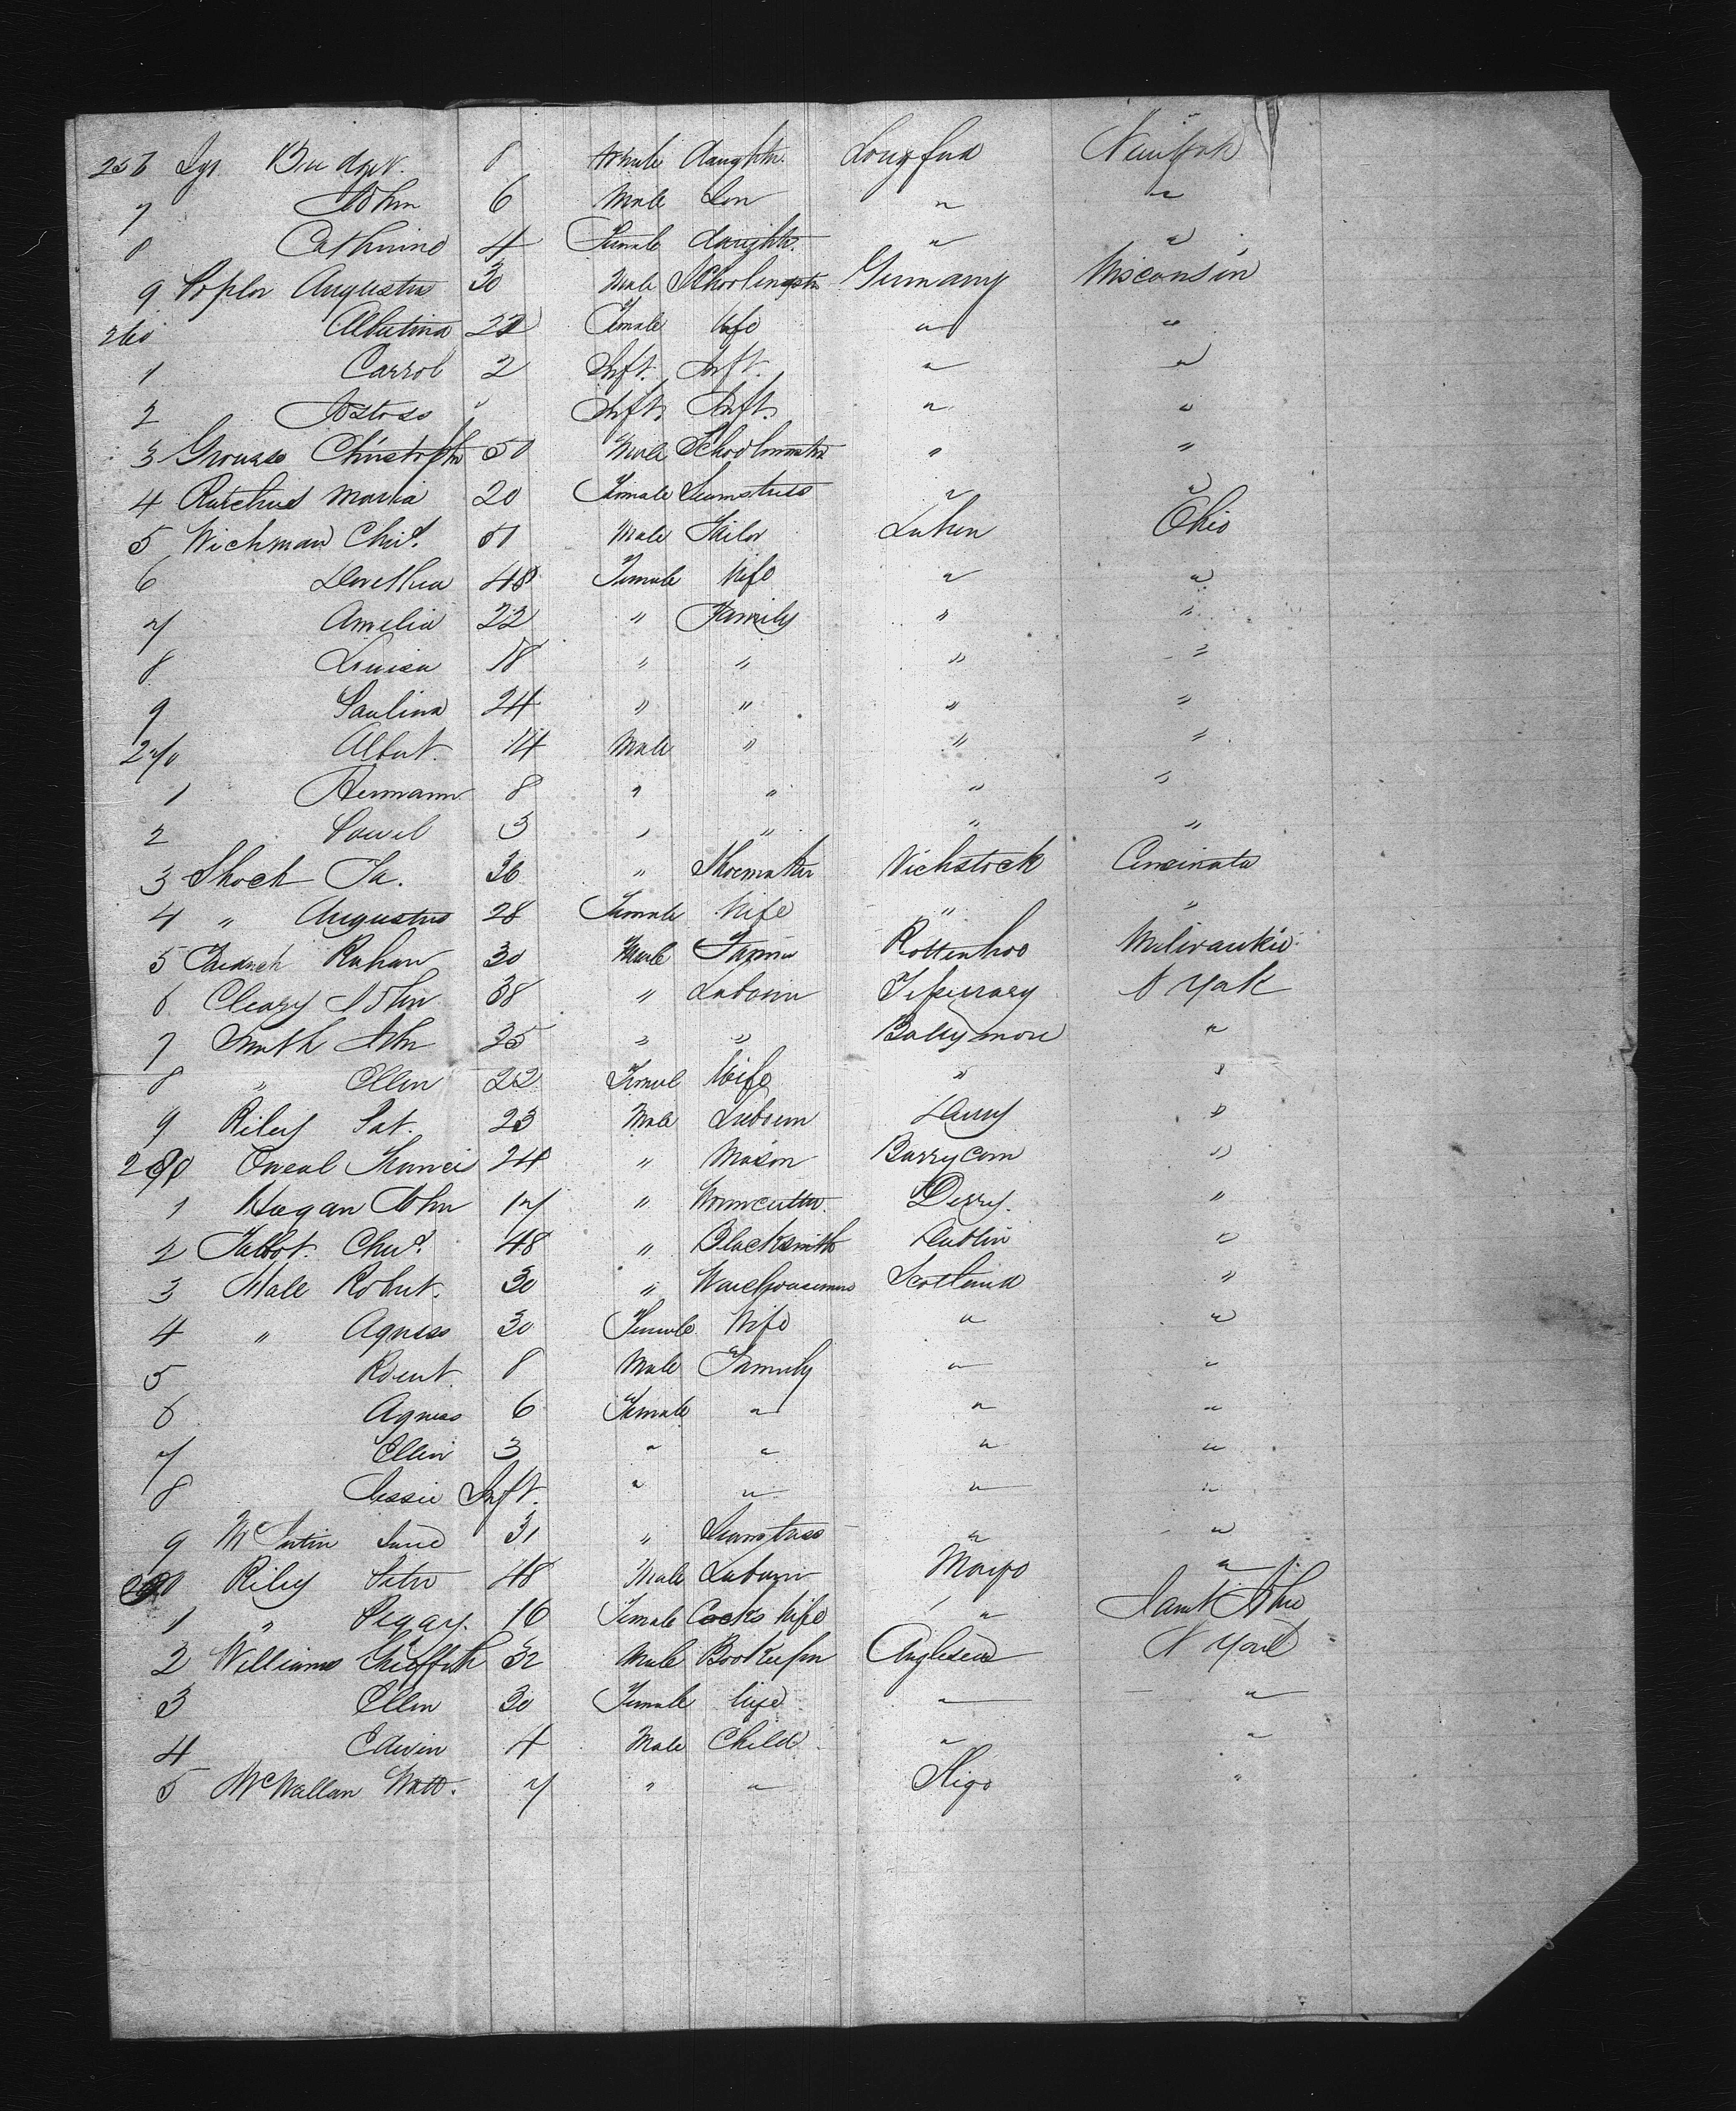 256 Bridget 8 Female daughter Longford New York
7 John 6 Male Son " "
8 Catherine 4 Female daughter " "
9 Poplor Augustus 30 Male Germany Wisconsin
260 Albertina 22 Female Wife " "
1 Carrol 2 Inft. Inft. " "
2 " Inft. Inft. " "
3 Christopher 50 Male Schoolmaster " "
4 Maria 20 Female Seamstress " "
5 Wichman Chrs. 51 Male Tailor Ohio
6 Dorethea 48 Female Wife " "
7 Amelia 22 " Family " "
8 Louisa 18 " " " "
9 Paulina 24 " " " "
270 Albert. 14 Male " " "
1 Hermann 8 " " " "
2 3 " " " "
3 Shock Ja. 36 " Shoemaker Vichstock Cincinata
4 " Augustus 28 Female Wife " "
5 Rahaw 30 Male Farmer Milwaukie
6 Cleary John 38 " Labourer Tipperary N York
7 Smith John 25 " " Ballymore "
8 " Ellen 22 Female Wife " "
9 Riley Pat. 23 Male Labourer "
280 Oneal Francis 24 " Mason "
1 Hagan John 17 " Derry. "
2 Talbot. Chrs. 48 " Blacksmith Dublin "
3 Robert. 30 " Warehouseman Scotland "
4 " Agness 30 Female Wife " "
5 Robert 8 Male Family " "
6 Agness 6 Female " " "
7 Ellen 3 " " " "
8 Jessie Inft. " " " "
9 31 " Seamstress " "
290 Riley Peter 48 Male Labourer Mayo "
1 " Peggy. 16 Female Cooks Wife "
2 Williams Griffith 32 Male Bookeeper Anglesea N York
3 Ellen 30 Female Wife " "
4 Edwin 4 Male Child " "
5 McWallan 7 " " Sligo "